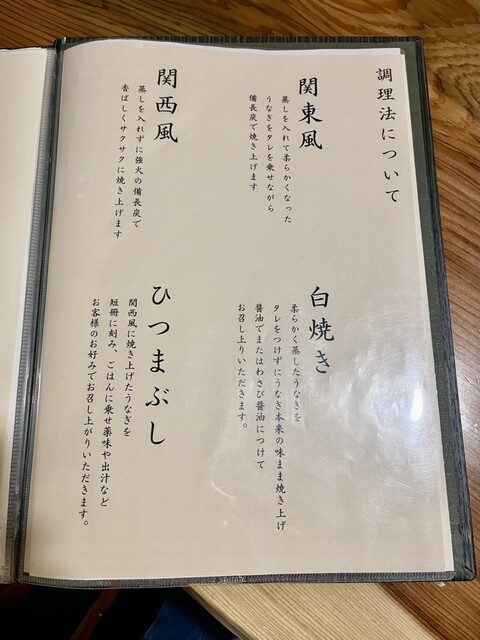 調理法について
関東風
蒸しを入れて柔らかくなった
うなぎをタレを乗せながら
備長炭で焼き上げます
関西風
蒸しを入れずに強火の備長炭で
香ばしくサクサクに焼き上げます
白焼き
柔らかく蒸したうなぎを
タレをつけずにうなぎ本来の味まま焼き上げ
醤油でまたはわさび醤油につけて
お召し上りいただきます。
ひつまぶし
関西風に焼き上げたうなぎを
短冊に刻み、ごはんに乗せ薬味や出汁など
お客様のお好みでお召し上がりいただきます。